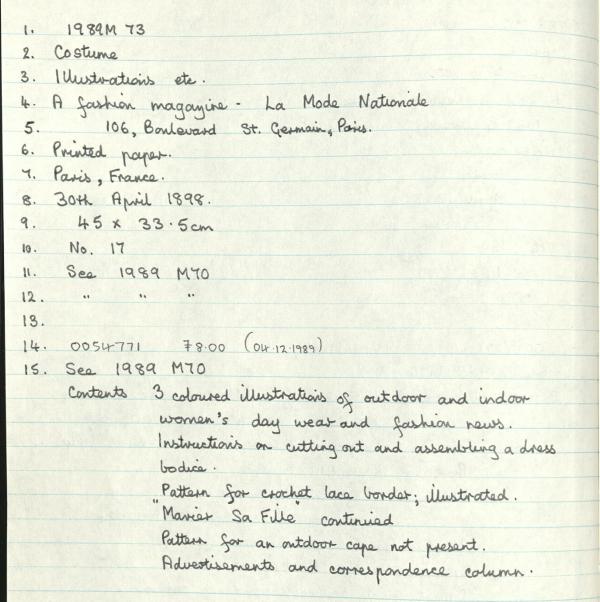 1. 1989M 73
2. Costume
3. Illustrations etc.
4. A fashion magazine - La Mode Nationale
5. 106, Boulevard St. Germain, Paris.
6. Printed paper.
7. Paris, France.
8. 30th April 1898.
9. 45 x 33.5cm
10. No. 17
11. See 1989 M70
12. " " "
13.
14. 0054771 78.00 (04.12.1989)
15. See 1989 M70
Contents 3 coloured illustrations of outdoor and indoor
women's day wear and fashion news.
Instructions on cutting out and assembling a dress
bodice.
Pattern for crochet lace border; illustrated.
"Marier Sa Fille" continued
Pattern for an outdoor cape not present.
Advertisements and correspondence column.